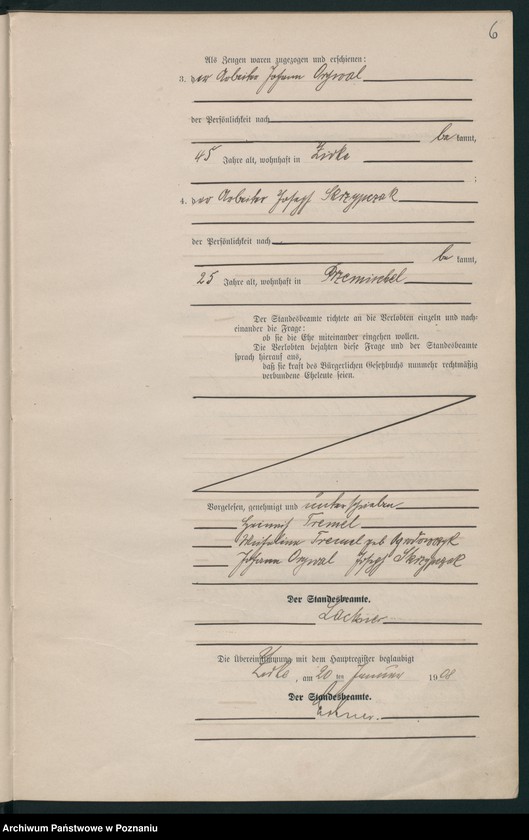 6
Als Zeugen waren zugezogen und erschienen:
3. der Arbeiter Johann
der Persönlichkeit nach
be kannt,
45 Jahre alt, wohnhaft in Zirke
;
4. der Arbeiter Joseph Skrzypczak
der Persönlichkeit nach
be kannt,
25 Jahre alt, wohnhaft in
Der Standesbeamte richtete an die Verlobten einzeln und nach-
einander die Frage:
ob sie die Ehe miteinander eingehen wollen.
Die Verlobten bejahten diese Frage und der Standesbeamte
sprach hierauf aus,
daß sie kraft des Bürgerlichen Gesetzbuchs nunmehr rechtmäßig
verbundene Eheleute seien.
Vorgelesen, genehmigt und unterschrieben
Heinrich Tremel
Tremel geb.
Johann Joseph Skrzypczak
Der Standesbeamte.
Die Übereinstimmung mit dem Hauptregister beglaubigt
Zirke, am 20 ten Januar 1908
Der Standesbeamte.
Archiwum Państwowe w Poznaniu